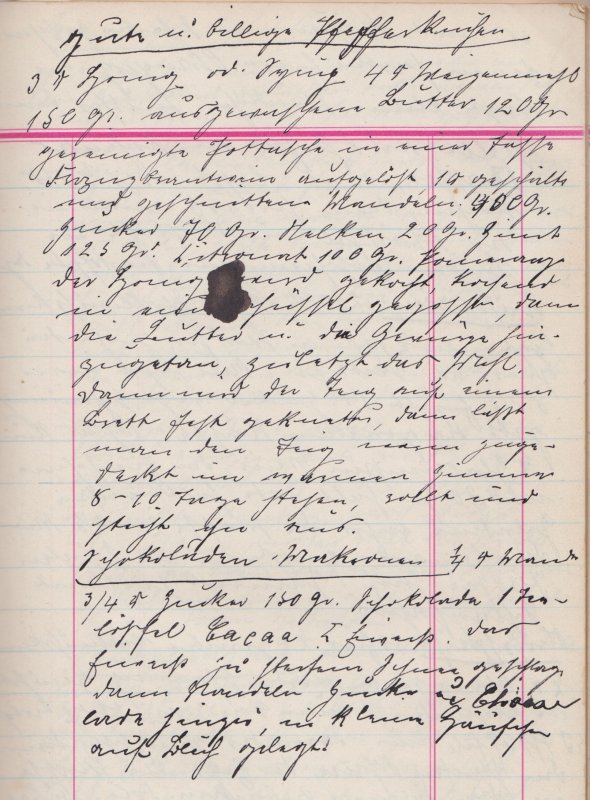 gute u. billige Pfefferkuchen
3 ℔ Honig od. Syrup 4 ℔ Weizenmehl
150 gr. ausgewaschene Butter 120 Gr
gereinigte Pottasche in einer Tasse
Franzbrantwein aufgelöst, 1 ℔ geschälte
und geschnittene Mandeln, 400 Gr.
Zucker 70 Gr. Nelken 20 Gr. Zimt
125 gr. Zitronat 100 Gr. Pomeranz
der Honig wird gekocht, kochend
in eine Schüssel gegossen, dann
die Butter u. die Gewürze hin-
zugetan, zuletzt das Mehl.
Dann wird der Teig auf einem
Brett fest geknetet, dann läßt
man den Teig warm zuge-
deckt im warmen Zimmer
8-10 Tage stehen, rollt und
sticht sie aus.
Schokoladen-Makronen 1/4 ℔ Mandel
3/4 ℔ Zucker 150 Gr. Schokolade 1 Tee-
löffel Cacao Eiweiß. das
Eiweiß zu steifem Schnee geschlage
dann Mandeln Zucker u. Choco
lade hinzu, in kleine Häufchen
auf Blech gelegt.